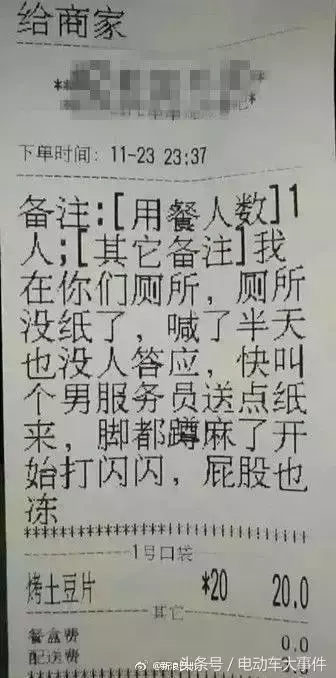 给商家
下单时间: 11-23 23:37
备注:[用餐人数]1
人;[其它备注]我
在你们厕所，厕所
没纸了，喊了半天
也没人答应，快叫
个男服务员送点纸
来，脚都蹲麻了开
始打闪闪，屁股也
冻
1号口袋
烤土豆片 *20 20.0
其它
餐盒费 0.0
配送费
头条号／电动车大事件